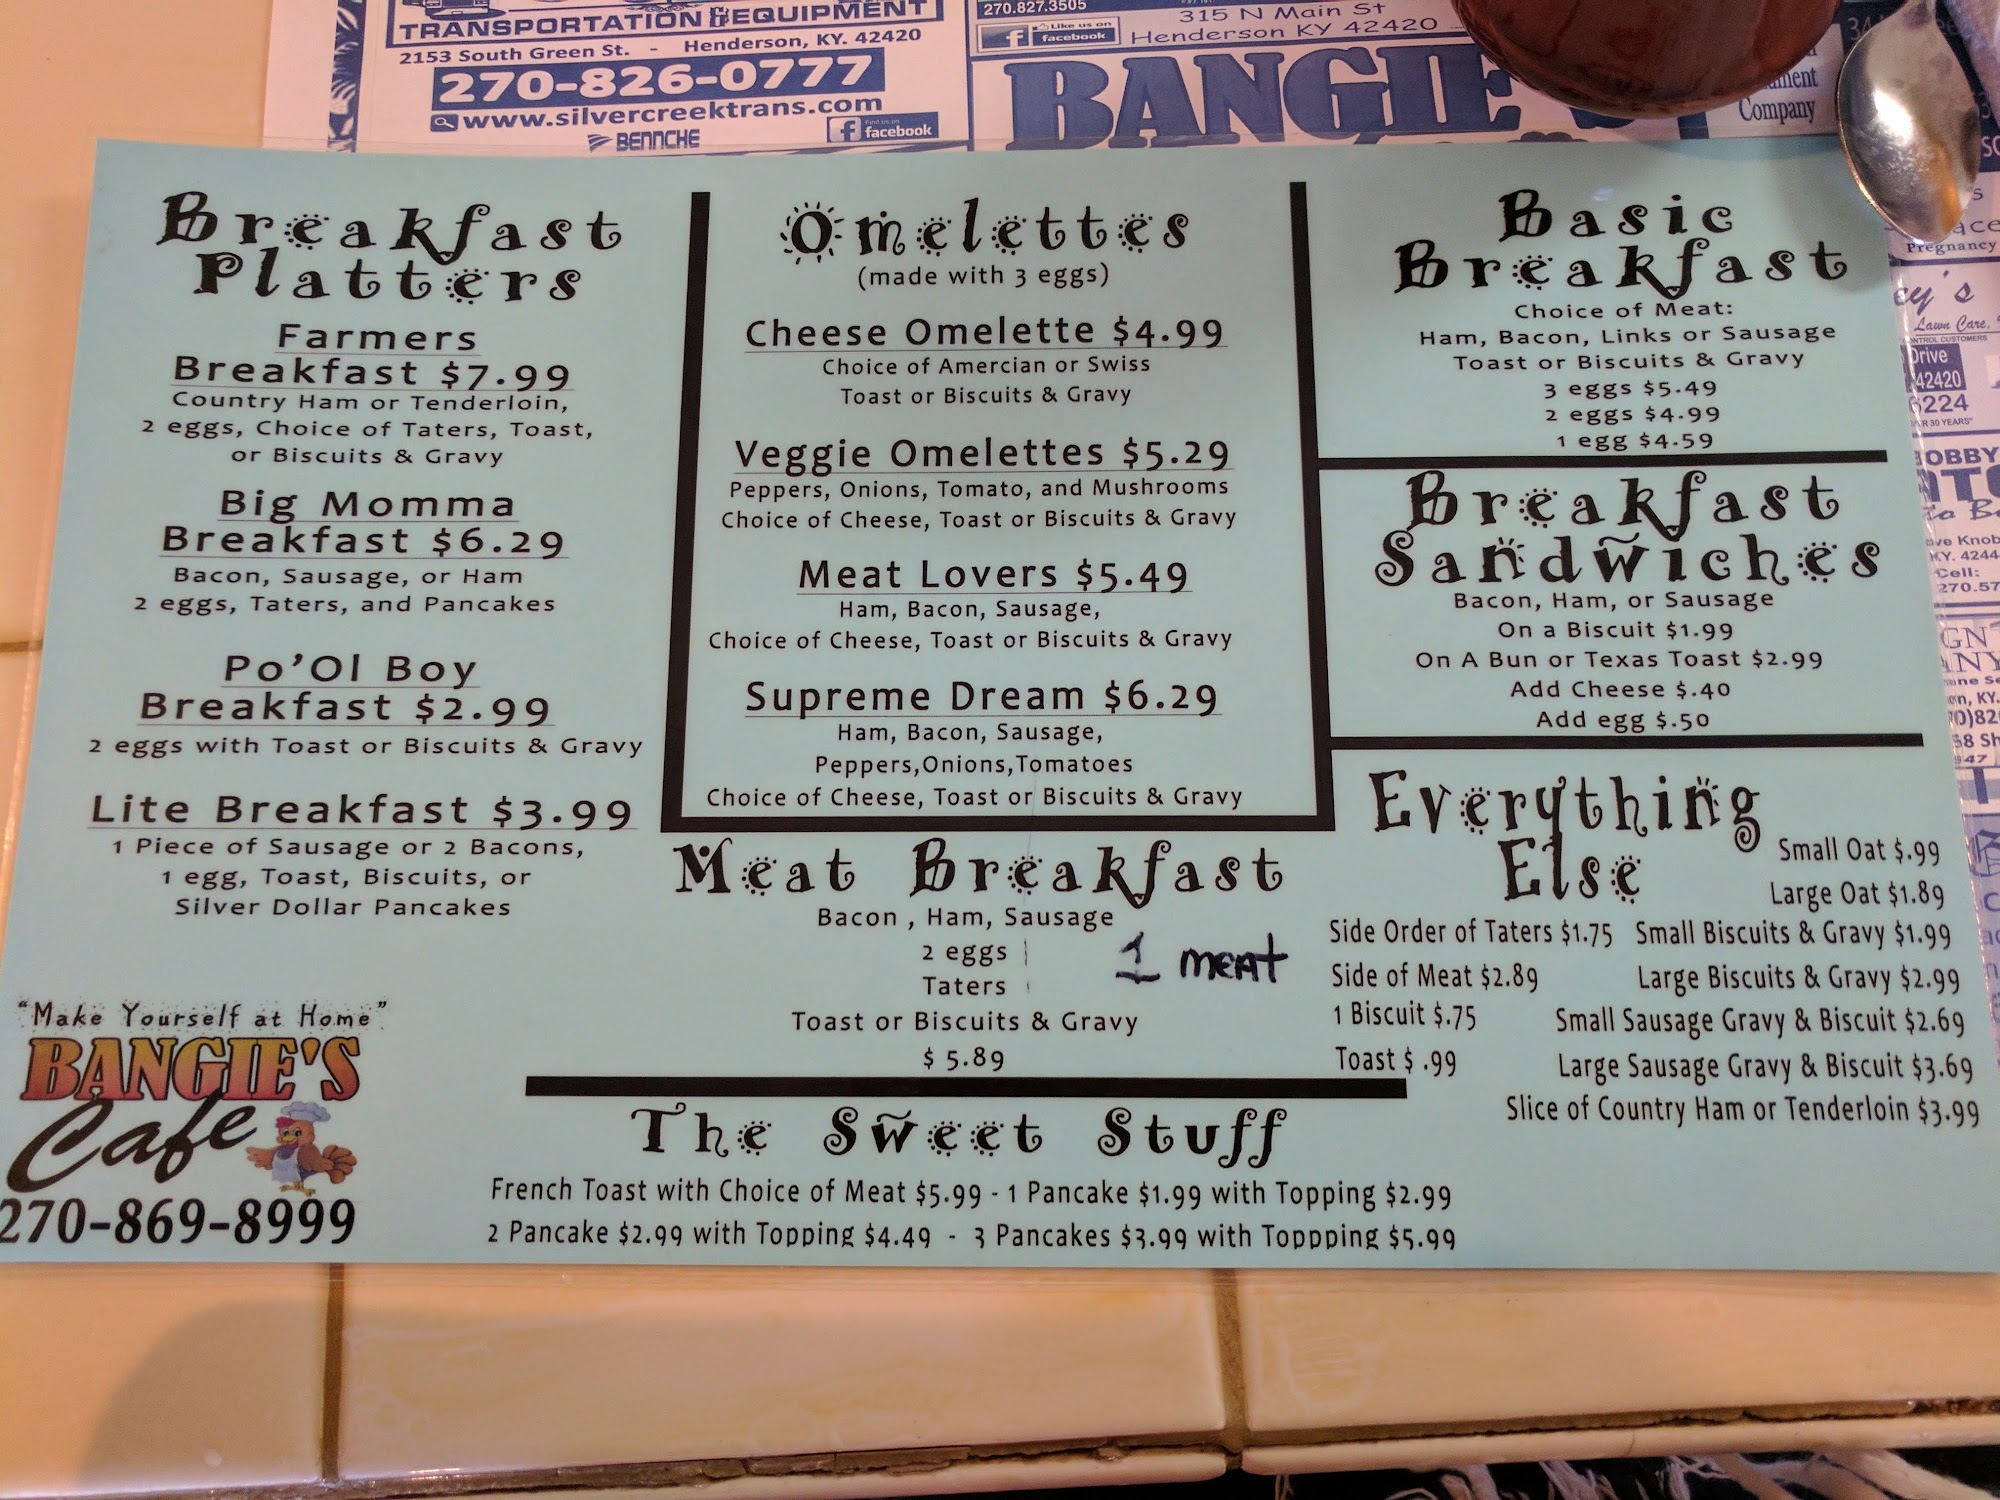 TRANSPORTATION & EQUIPMENT
2153 South Green St. - Henderson, KY. 42420
270-826-0777
www.silvercreektrans.com
BENNCHE
Find us on
facebook
270.827.3505
Like us on
facebook
315 N Main St
Henderson KY 42420
BANGIE'S
Company
Breakfast
Platters
Farmers
Breakfast $7.99
Country Ham or Tenderloin,
2 eggs, Choice of Taters, Toast,
or Biscuits & Gravy
Big Momma
Breakfast $6.29
Bacon, Sausage, or Ham
2 eggs, Taters, and Pancakes
Po'Ol Boy
Breakfast $2.99
2 eggs with Toast or Biscuits & Gravy
Lite Breakfast $3.99
1 Piece of Sausage or 2 Bacons,
1 egg, Toast, Biscuits, or
Silver Dollar Pancakes
"Make Yourself at Home"
BANGIE'S
Cafe
270-869-8999
Omelettes
(made with 3 eggs)
Cheese Omelette $4.99
Choice of Amercian or Swiss
Toast or Biscuits & Gravy
Veggie Omelettes $5.29
Peppers, Onions, Tomato, and Mushrooms
Choice of Cheese, Toast or Biscuits & Gravy
Meat Lovers $5.49
Ham, Bacon, Sausage,
Choice of Cheese, Toast or Biscuits & Gravy
Supreme Dream $6.29
Ham, Bacon, Sausage,
Peppers,Onions,Tomatoes
Choice of Cheese, Toast or Biscuits & Gravy
Meat Breakfast
Bacon , Ham, Sausage
2 eggs
Taters
1 MEAT
Toast or Biscuits & Gravy
$ 5.89
The Sweet Stuff
French Toast with Choice of Meat $5.99 - 1 Pancake $1.99 with Topping $2.99
2 Pancake $2.99 with Topping $4.49 - 3 Pancakes $3.99 with Toppping $5.99
Basic
Breakfast
Choice of Meat:
Ham, Bacon, Links or Sausage
Toast or Biscuits & Gravy
3 eggs $5.49
2 eggs $4.99
1 egg $4.59
Breakfast
Sandwiches
Bacon, Ham, or Sausage
On a Biscuit $1.99
On A Bun or Texas Toast $2.99
Add Cheese $.40
Add egg $.50
Everything
Else
Small Oat $.99
Large Oat $1.89
Side Order of Taters $1.75
Small Biscuits & Gravy $1.99
Side of Meat $2.89
Large Biscuits & Gravy $2.99
1 Biscuit $.75
Small Sausage Gravy & Biscuit $2.69
Toast $ .99
Large Sausage Gravy & Biscuit $3.69
Slice of Country Ham or Tenderloin $3.99
Pregnancy
Lawn Care,
Drive
42420
6224
BOBBY
Cell:
270.57